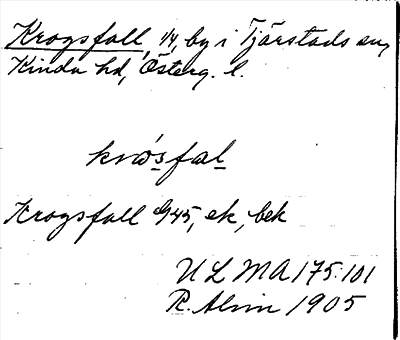 Krogsfall, 1/4, by i Tjärstads sn,
Kinda hd, Österg. l.
krósfal
Krogsfall G45, ek, bek
ULMA 175:101
R. Alvin 1905